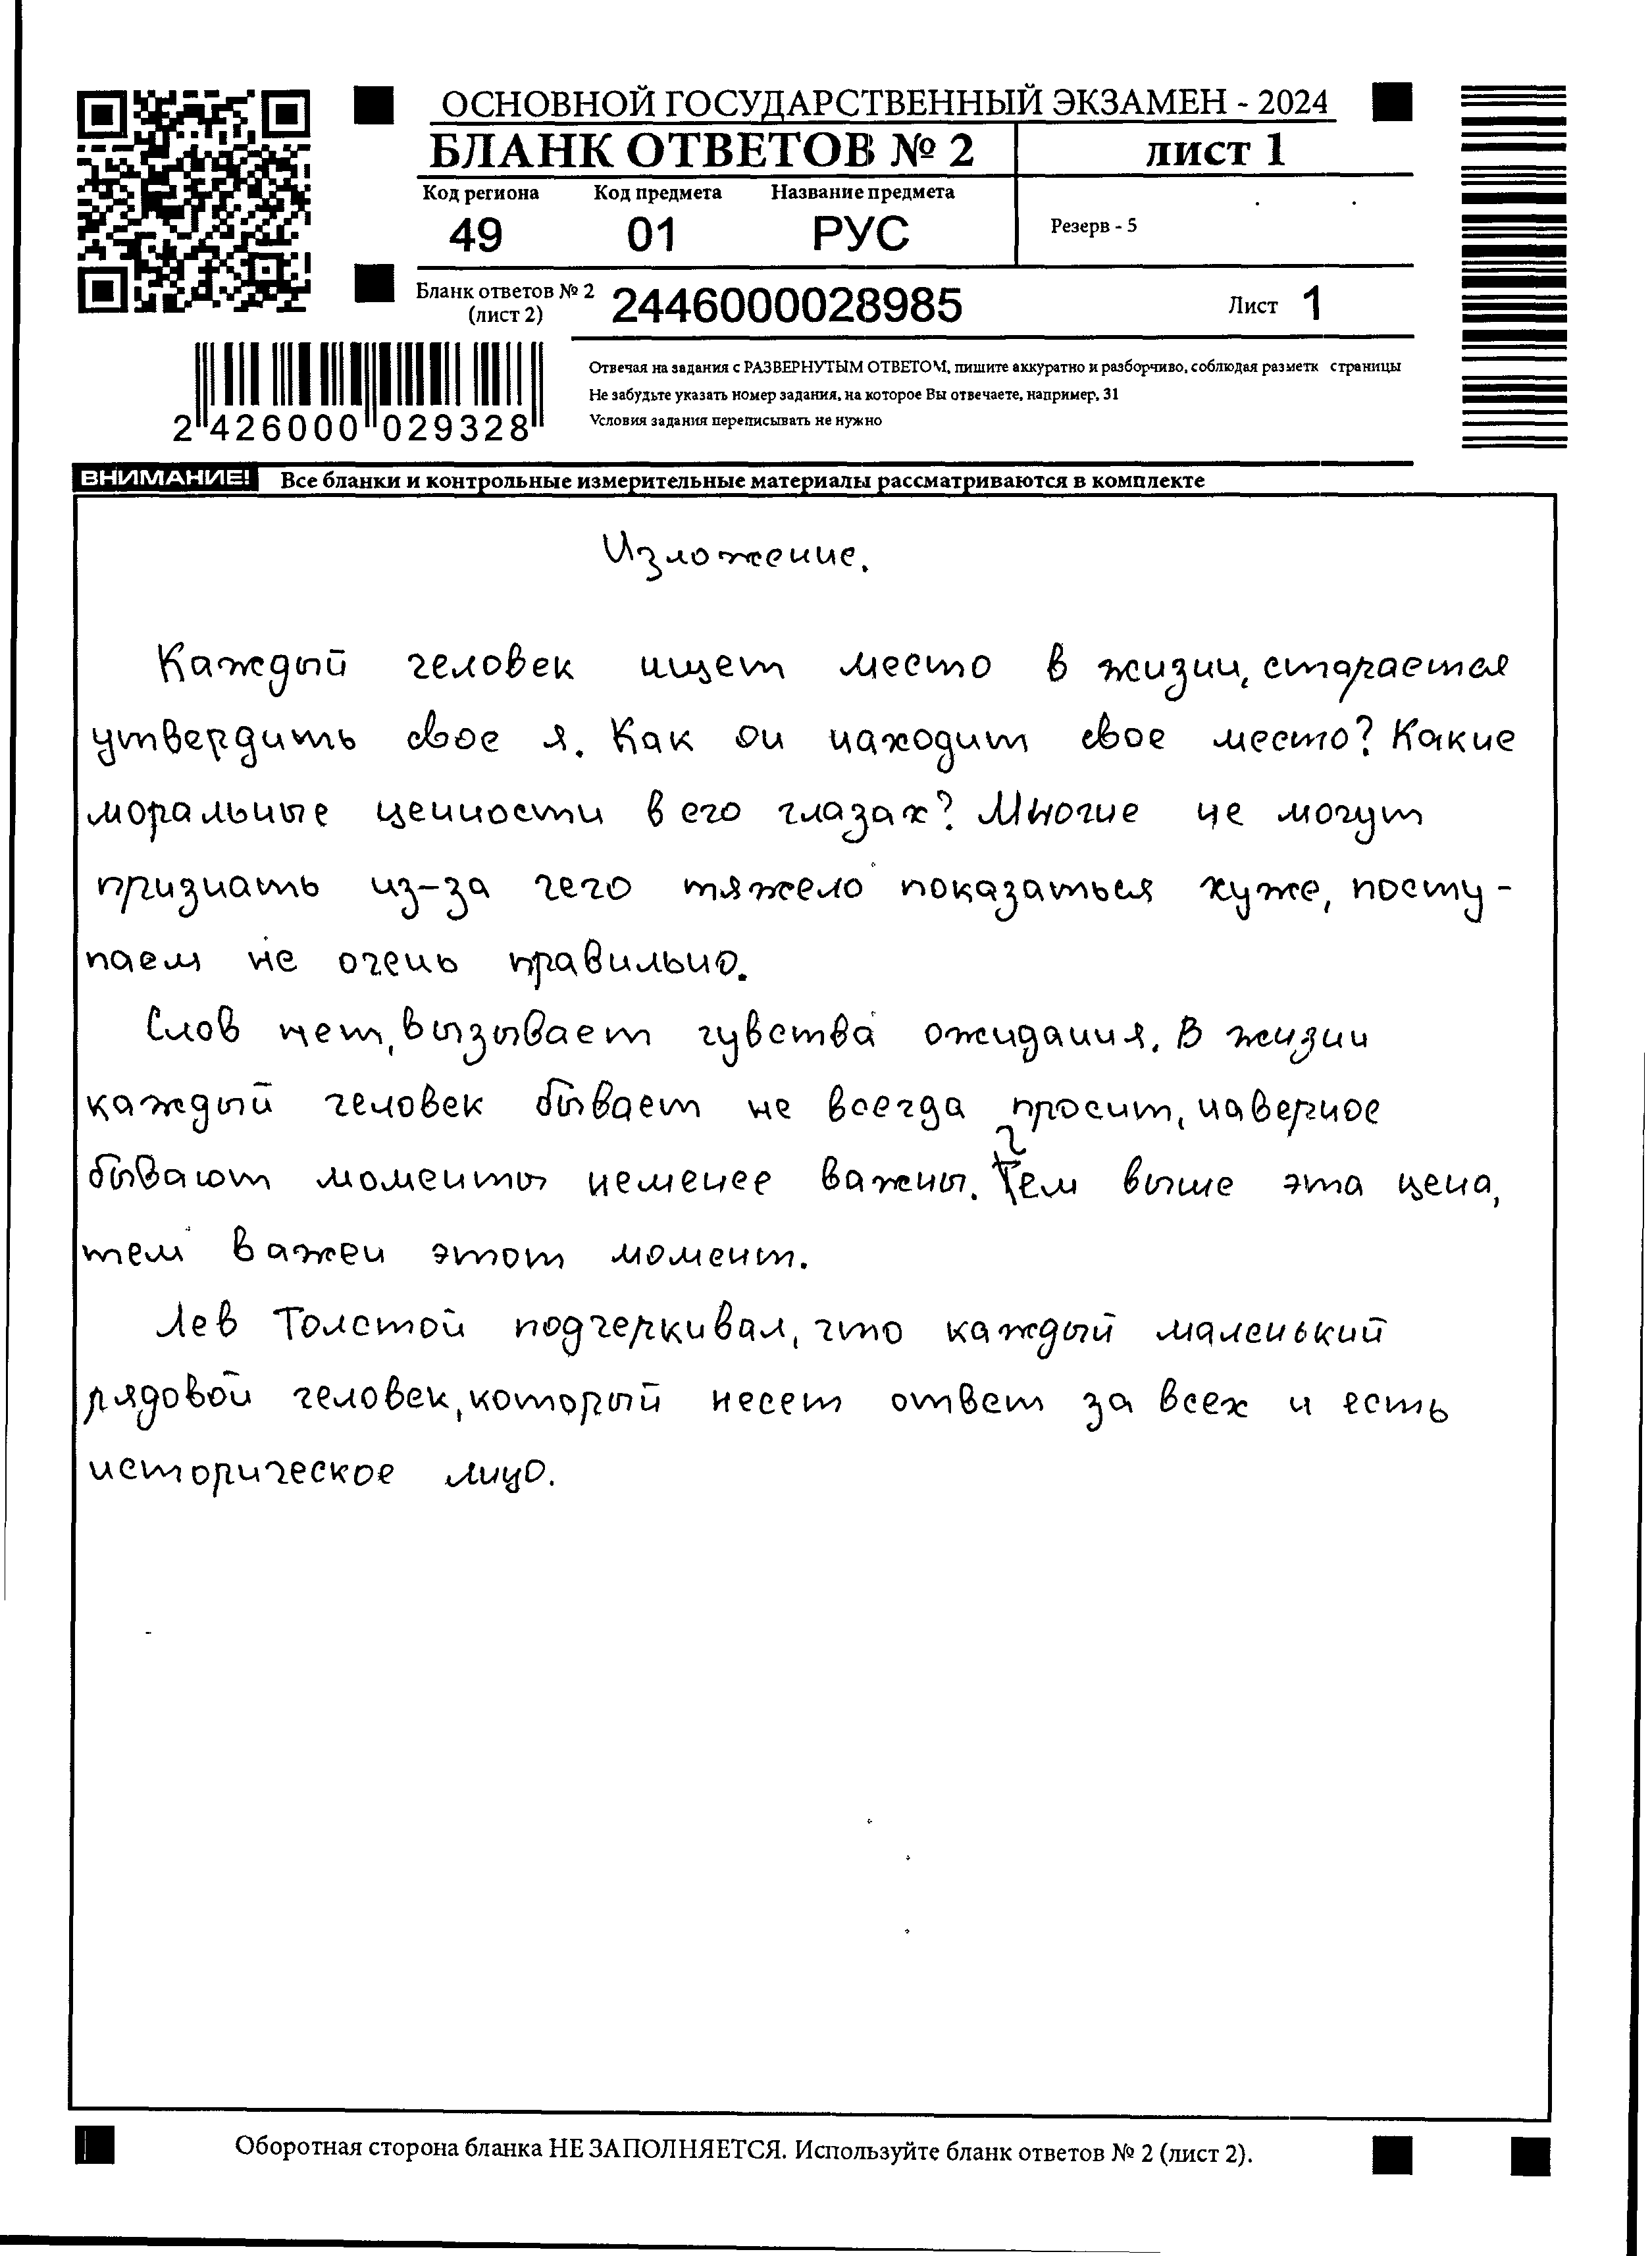 ОСНОВНОЙ ГОСУДАРСТВЕННЫЙ ЭКЗАМЕН - 2024
БЛАНК ОТВЕТОВ № 2
ЛИСТ 1
Код региона Код предмета Название предмета
49 01 РУС
Резерв - 5
Бланк ответов № 2
(лист 2)
2446000028985
Лист 1
2 426000 029328
Отвечая на задания с РАЗВЕРНУТЫМ ОТВЕТОМ, пишите аккуратно и разборчиво, соблюдая разметк страницы
Не забудьте указать номер задания, на которое Вы отвечаете, например, 31
Условия задания переписывать не нужно
ВНИМАНИЕ! Все бланки и контрольные измерительные материалы рассматриваются в комплекте
Изложение.
Каждый человек ищет место в жизни, старается
утвердить свое я. Как он находит свое место? Какие
моральные ценности в его глазах? Многие не могут
признать из-за чего тяжело показаться хуже, посту-
паем не очень правильно.
Слов нет, вызывает чувства ожидания. В жизни
каждый человек бывает не всегда просит, наверное
бывают моменты неменее важны. Чем выше эта цена,
тем важен этот момент.
Лев Толстой подчеркивал, что каждый маленький
рядовой человек, который несет ответ за всех и есть
историческое лицо.
Оборотная сторона бланка НЕ ЗАПОЛНЯЕТСЯ. Используйте бланк ответов № 2 (лист 2).